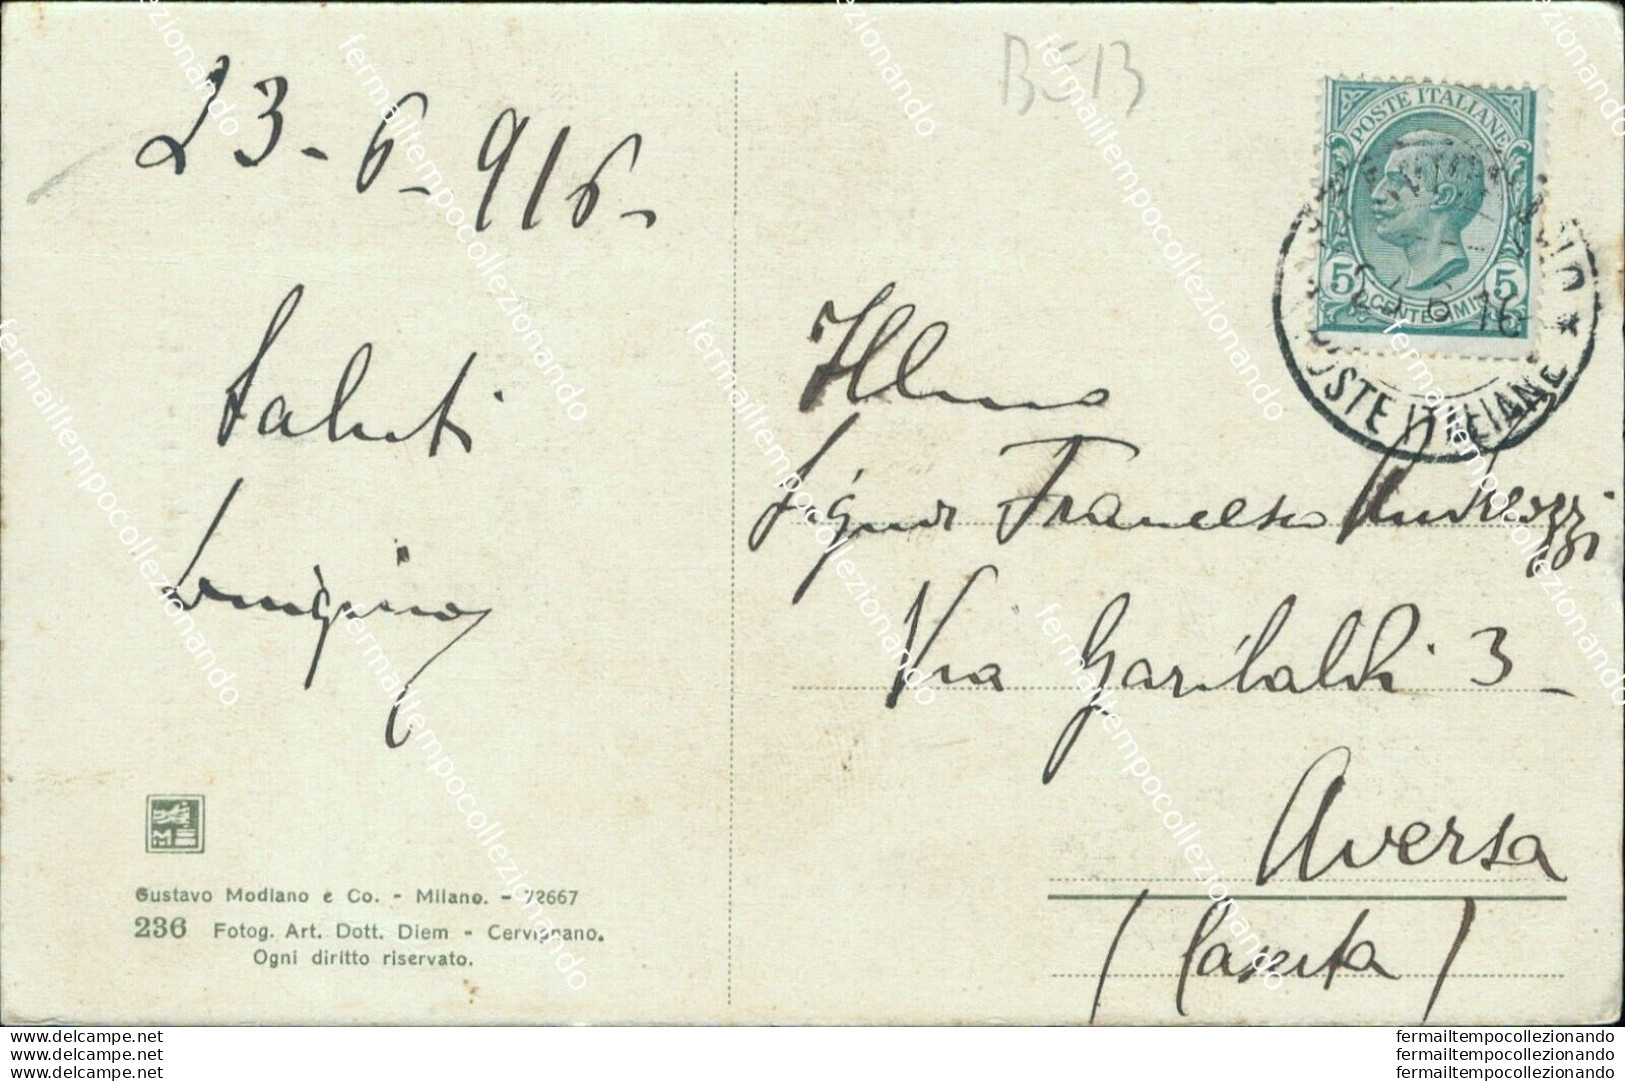 BEB
23-6-916-
Saluti
Luigino
POSTE ITALIANE
5 CENTESIMI 5
16
POSTE ITALIANE
Illmo
Signor Francesco Andreozzi
Via Garibaldi 3-
Aversa
(Caserta)
Gustavo Modiano e Co. - Milano. - 72667
236 Fotog. Art. Dott. Diem - Cervignano.
Ogni diritto riservato.
www.delcampe.net
www.delcampe.net
www.delcampe.net
fermailtempocollezionando
fermailtempocollezionando
fermailtempocollezionando